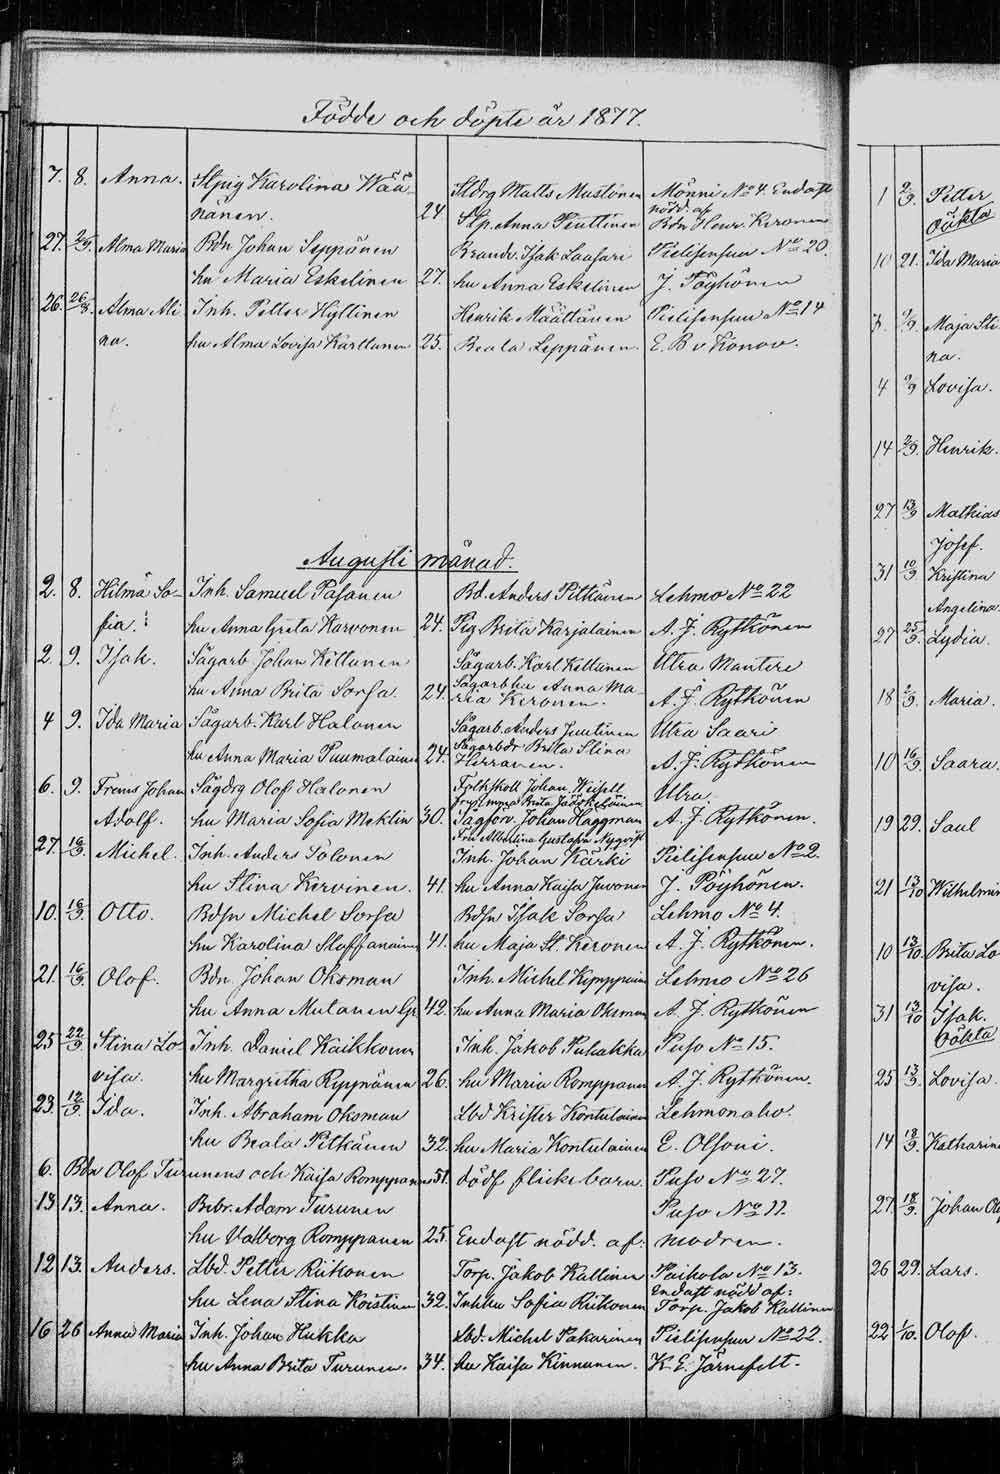 Födde och döpte år 1877.
7. 8. Anna. Stpig Karolina Wää- Stdrg Matts Mustonen Mönni No 4. Endast
nänen. 24. Stp. Anna Penttinen nödd. af Bdn Henr. Keronen
27. 2/9. Alma Maria Bdn Johan Seppänen Brandv. Isak Laasari Pielisensuu No 20.
hu Maria Eskelinen 27. hu Anna Eskelinen J. Pöyhönen
26. 26/8. Alma Ali- Inh. Petter Hyttinen Henrik Määttänen Pielisensuu No 14
na. hu Alma Lovisa Karttunen 25. Beata Leppänen. E. B v Konow.
Augusti månad.
2. 8. Hilma So- Inh. Samuel Pasanen Bd. Anders Pitkänen Lehmo No 22
fia. hu Anna Greta Karvonen 24. Pig Brita Karjalainen A. J. Rytkönen
2. 9. Isak. Sågarb Johan Kettunen Sågarb. Karl Kettunen Utra Mantere
hu Anna Brita Sorsa 24. Sågarb hu Anna Ma- ria Keronen. A. J. Rytkönen
4 9. Ida Maria Sågarb. Karl Halonen Sågarb. Anders Juutinen Utra Saari
hu Anna Maria Puumalainen 24. Sågarbdr Brita Stina Herranen. A. J. Rytkönen
6. 9. Frans Johan Sågdrg Olof Halonen Folkskoll Johan Weisell Utra
Adolf. hu Maria Sofia Meklin 30. Sågförv. Johan Häggman A. J. Rytkönen.
Fru Albertina Gustafva Nyqvist
27. 16/9. Michel. Inh. Anders Tolonen Inh. Johan Kärki Pielisensuu No 2.
hu Stina Kervinen. 41. hu Anna Kaisa Juvonen J. Pöyhönen.
10. 16/9. Otto. Bdsn Michel Sorsa Bdsn Isak Sorsa Lehmo No 4.
hu Karolina Staffanainen 41. hu Maja St. Keronen A. J. Rytkönen.
21. 16/9. Olof. Bdn. Johan Oksman Inh. Michel Kymppainen Lehmo No 26
hu Anna Mutanen 42. hu Anna Maria Oksman A. J. Rytkönen
25 22/9. Stina Lo- Inh. Daniel Kaikkonen Inh. Jakob Puhakka Puso No 15.
visa. hu Margretha Ryynänen 26. hu Maria Romppanen A. J. Rytkönen.
23. 12/9. Ida. Inh. Abraham Oksman Lbd Krister Kontulainen Lehmonaho.
hu Beata Pitkänen 32. hu Maria Kontulainen E. Olsoni.
6. Bdn Olof Turunens och Kaisa Romppanens 51. dödf flickebarn. Puso No 27.
13 13. Anna. Bdbr. Adam Turunen Puso No 11.
hu Valborg Romppanen 25. Endast nödd. af: modren.
12 13. Anders. Lbd. Petter Riikonen Torp. Jakob Kallinen Paihola No 13.
hu Lena Stina Koistinen 32. Inhhu Sofia Riikonen Endast nödd af: Torp. Jakob Kallinen
16 26 Anna Maria Inh. Johan Hukka Lbd. Michel Pakarinen Pielisensuu No 22.
hu Anna Brita Turunen. 34. hu Kaisa Kinnunen. K. E. Järnefelt.
1 2/9. Petter
Oäkta
10 21. Ida Maria
9/9. Maja Sti-
na.
4 9/9 Lovisa.
14 2/9. Henrik.
27 13/9 Mathias
Josef.
31 10/9. Kristina
Angelina.
27 25/9. Lydia.
18 2/9. Maria.
10 16/9. Saara.
19 29. Saul
21 13/10 Wilhelmin
10 13/10. Brita Lo-
visa.
31 13/10 Isak.
Oäkta
25 13/9. Lovisa.
14 18/9. Katharina
27. 18/9. Johan Olo
26 29. Lars.
22 1/10. Olof.